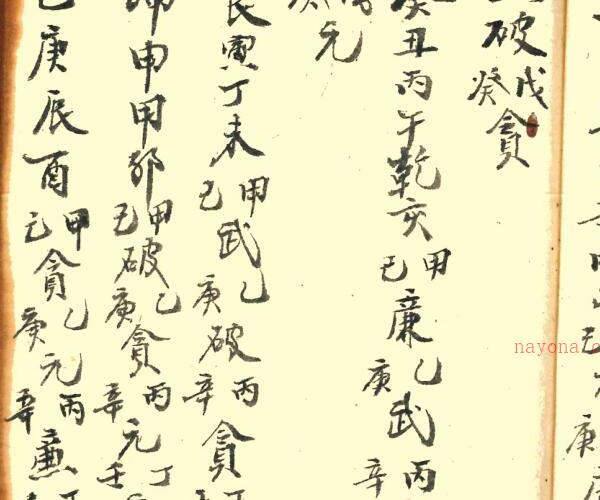 破
戊癸
貪
丑丙午乾亥
甲己
廉
乙庚
武
丙辛
元
寅丁未
甲己
武
乙庚
破
丙辛
貪
申甲卯
甲己
破
乙庚
貪
丙辛
元
丁壬
庚辰酉
甲己
貪
乙庚
元
丙辛
廉
nayona
庚